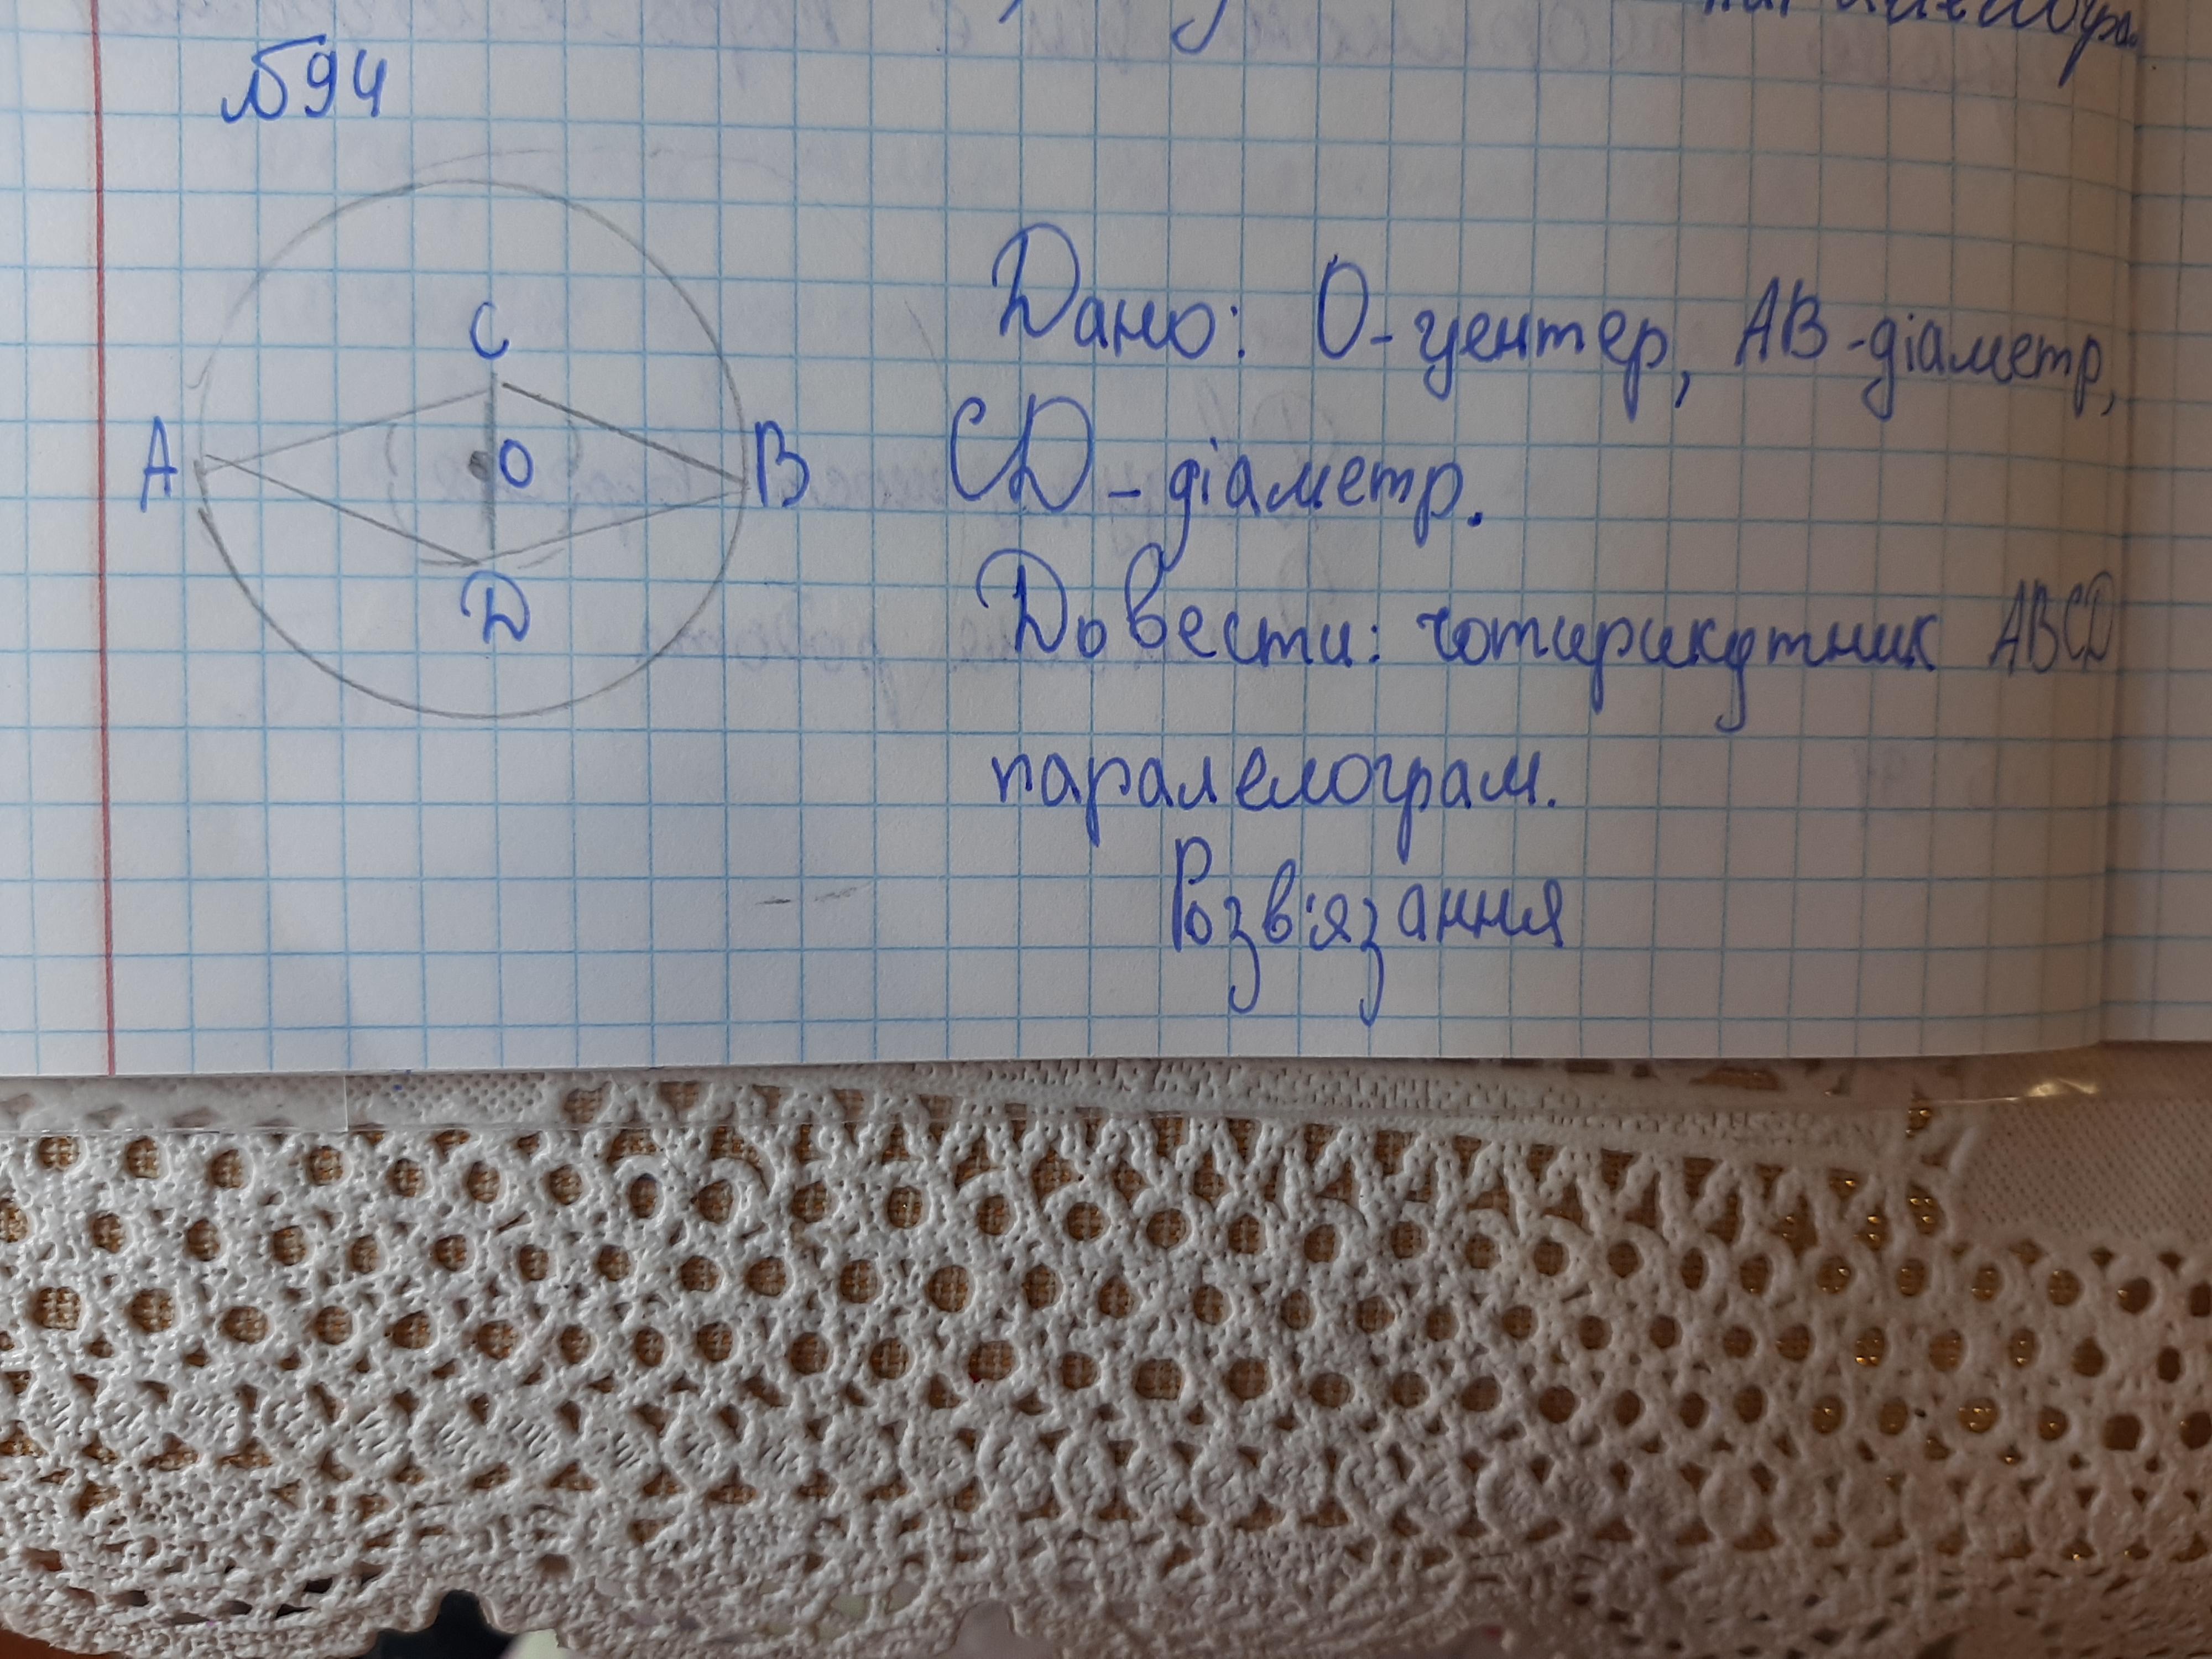 №94
C
A
O
B
D
Дано: О-центер, АВ-діаметр,
CD-діаметр.
Довести: чотирикутник ABCD
паралелограм.
Розв'язання